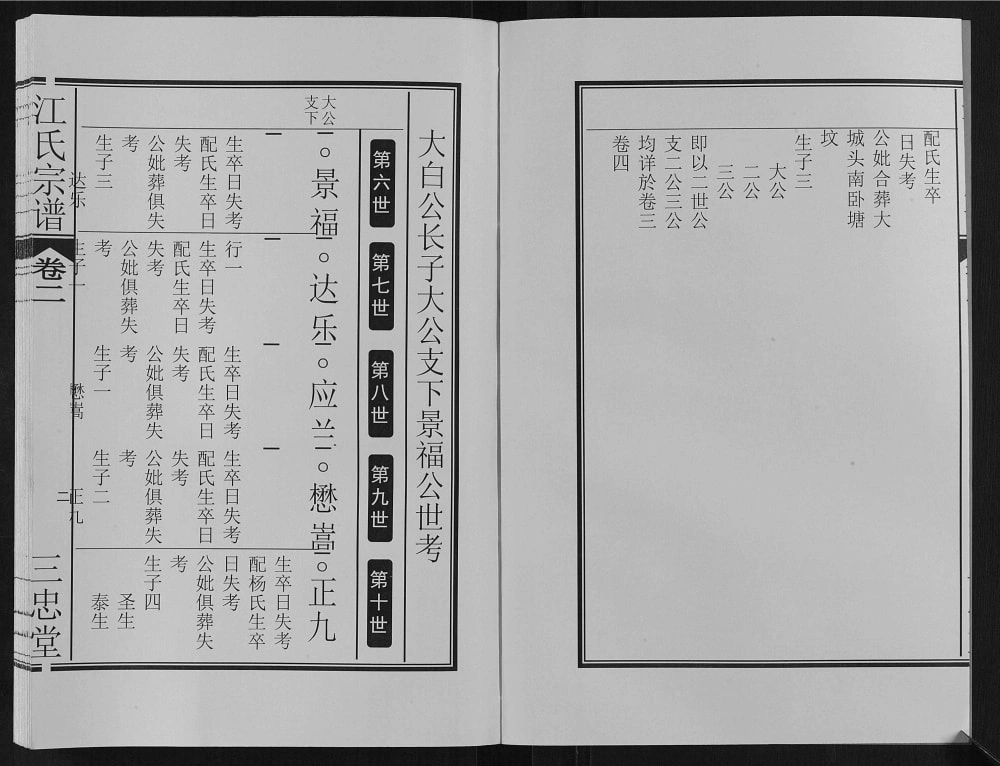 配氏生卒
日失考
公妣合葬大
城头南卧塘
坟
生子三
大公
二公
三公
即以二世公
支二公三公
均详於卷三
卷四
大白公长子大公支下景福公世考
第六世
第七世
第八世
第九世
第十世
大公
支下
一○景福
生卒日失考
配氏生卒日
失考
公妣葬俱失
考
生子三
达乐
一○达乐
行一
生卒日失考
配氏生卒日
失考
公妣俱葬失
考
生子一
一○应兰
生卒日失考
配氏生卒日
失考
公妣俱葬失
考
生子一
懋嵩
一○懋嵩
生卒日失考
配氏生卒日
失考
公妣俱葬失
考
生子二
正九
一○正九
生卒日失考
配杨氏生卒
日失考
公妣俱葬失
考
生子四
圣生
泰生
江氏宗谱
卷二
二
三忠堂